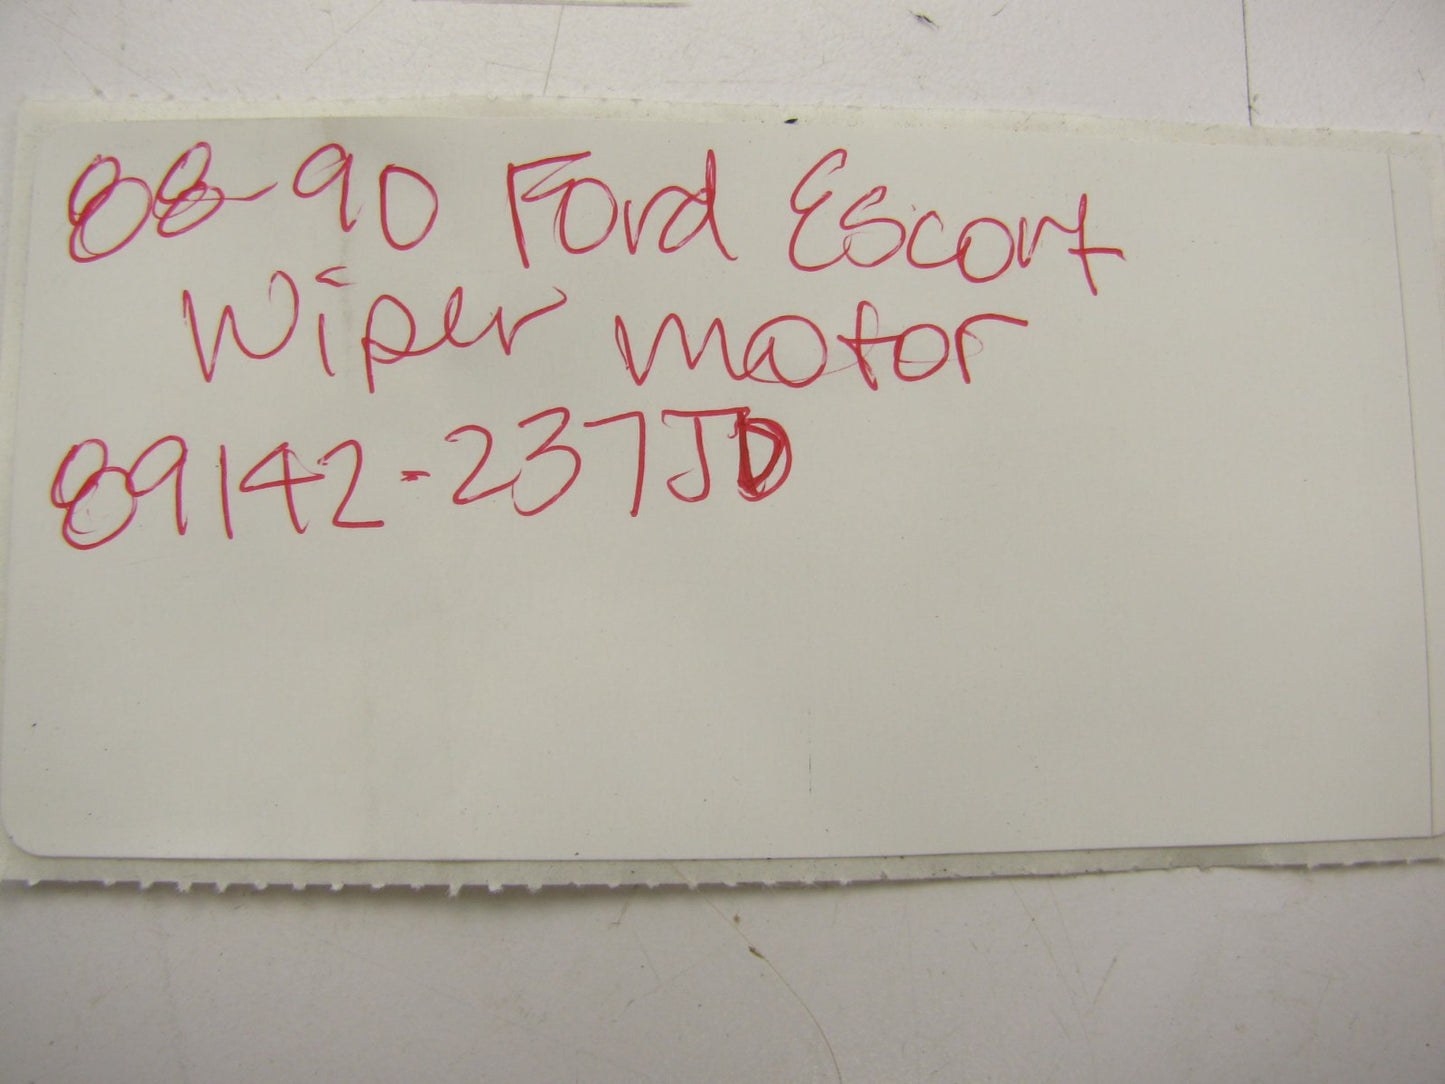 88-90 Ford Escort
Wiper motor
89142-237JD